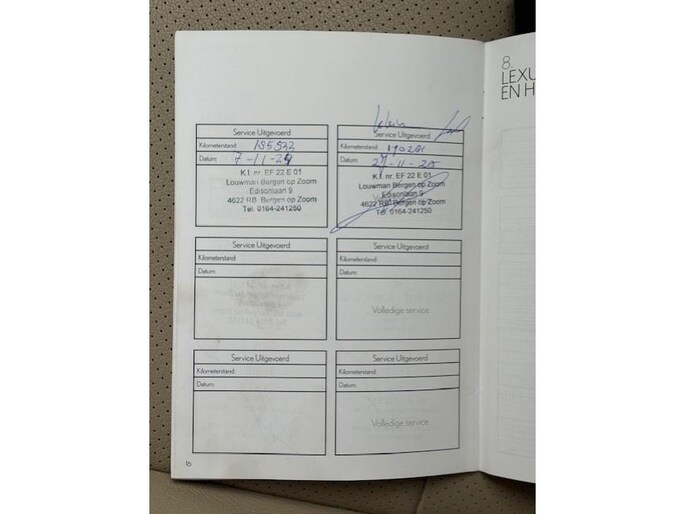 8.
LEXU
EN H
Service Uitgevoerd
Kilometerstand: 185532
Datum: 7-11-24
K.I. nr. EF 22 E 01
Louwman Bergen op Zoom
Edisonlaan 9
4622 RB Bergen op Zoom
Tel. 0164-241250
Service Uitgevoerd
Kilometerstand: 190281
Datum: 27-11-25
K.I. nr. EF 22 E 01
Louwman Bergen op Zoom
Edisonlaan 9
4622 RB Bergen op Zoom
Tel. 0164-241250
Service Uitgevoerd
Kilometerstand:
Datum:
Service Uitgevoerd
Kilometerstand:
Datum:
Volledige service
Service Uitgevoerd
Kilometerstand:
Datum:
Service Uitgevoerd
Kilometerstand:
Datum:
Volledige service